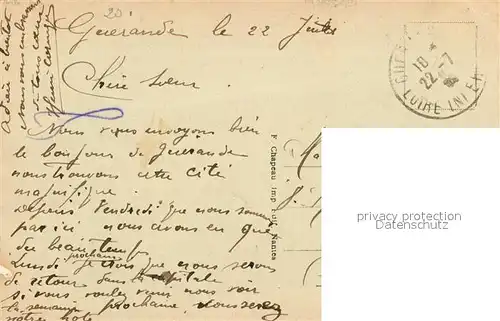 20
Guérande le 22 Juillet
Chère soeur
Nous vous envoyons bien
le bonjour de Guérande
nous trouvons cette cité
magnifique.
Depuis Vendredi que nous sommes
par ici nous avons eu que
du beau temps
Lundi prochain je crois que nous serons
de retour dans la capitale
si vous voulez venir nous voir
la semaine prochaine vous serez
notre hôte
Adieu à bientôt
Nous vous embrassons
de tout coeur
GUE
18 *
22 - 7
LOIRE INFRE
F. Chapeau Imp. Edit. Nantes
privacy protection
Datenschutz